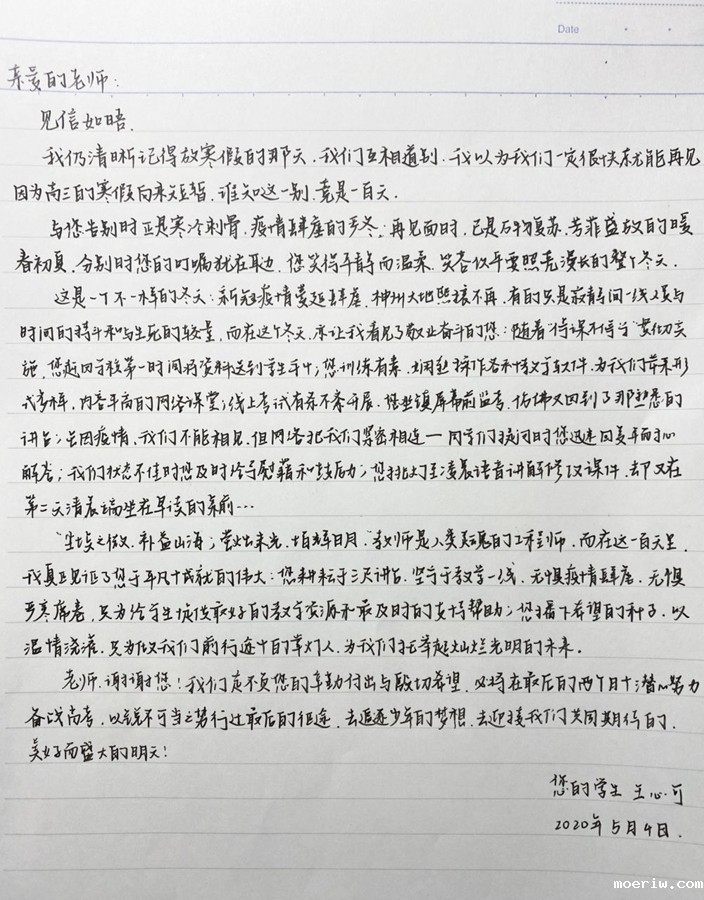 Date
亲爱的老师:
见信如晤.
我仍清晰记得放寒假的那天,我们互相道别,我以为我们一定很快就能再见
因为高三的寒假向来短暂,谁知这一别,竟是一百天.
与您告别时正是寒冷刺骨,疫情肆虐的严冬;再见面时,已是万物复苏,芳菲盛放的暖
春初夏,分别时您的叮嘱犹在耳边,您笑得平静而温柔,笑容似乎要照亮漫长的整个冬天.
这是一个不一样的冬天:新冠疫情蔓延肆虐,神州大地熙攘不再,有的只是寂静间一线人员与
时间的搏斗和与生死的较量,而在这个冬天,亦让我看见了敬业奋斗的您:随着"停课不停学"实
施,您赶回学校第一时间将资料送到学生手中;您训练有素,娴熟操作各种教学软件,为我们带来形
式多样,内容丰富的网络课堂;线上考试有条不紊开展,您坐镇屏幕前监考,仿佛又回到了那熟悉的
讲台;虽因疫情,我们不能相见,但网络把我们紧密相连一同学们提问时您迅速回复耐心
解答;我们状态不佳时您及时给予慰藉和鼓励;您挑灯至凌晨语音讲解修改课件,却又在
第二天清晨端坐在早读的桌前…
"尘埃之微,补益山海;萤烛末光,增辉日月."教师是人类灵魂的工程师,而在这一百天里,
我真正见证了您于平凡中成就的伟大:您耕耘于三尺讲台,坚守于教学一线,无惧疫情肆虐,无惧
严寒席卷,只为给学生提供最好的教学资源和最及时的支持帮助;您播下希望的种子,以
温情浇灌,只为做我们前行途中的掌灯人,为我们托举起灿烂光明的未来.
老师,谢谢您!我们定不负您的辛勤付出与殷切希望,必将在最后的两个月中潜心努力
备战高考,以锐不可当之势行过最后的征途,去追逐少年的梦想,去迎接我们共同期待的,
美好而盛大的明天!
您的学生 王心可
2020年5月4日.
moeriw.com